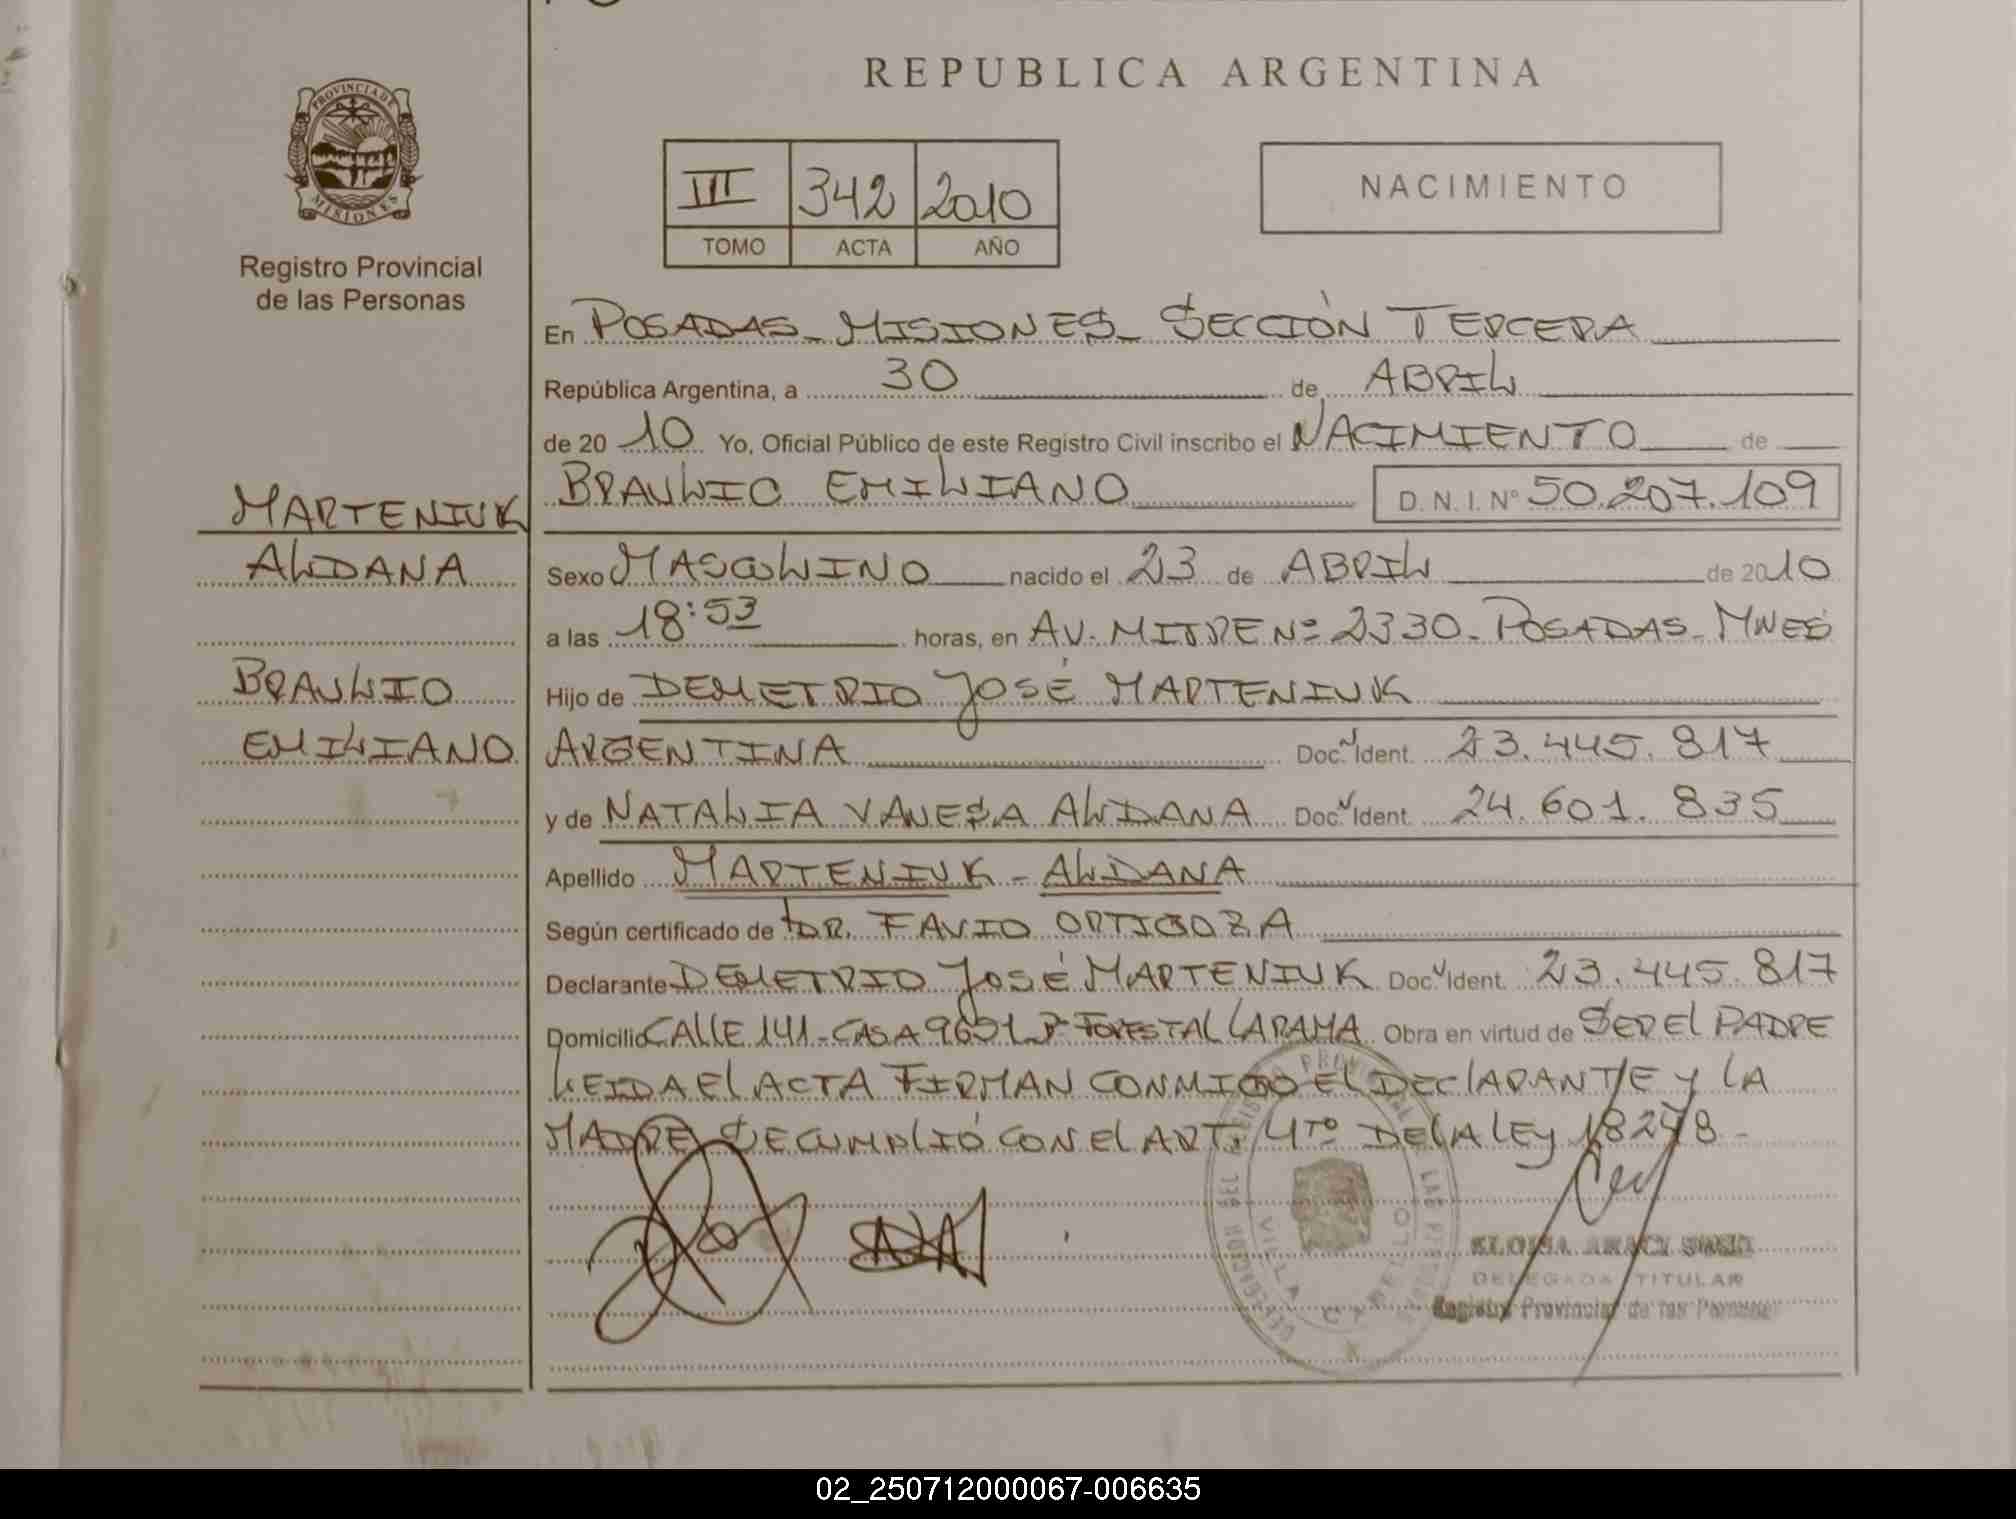 REPUBLICA ARGENTINA
PROVINCIA DE
MISIONES
Registro Provincial
de las Personas
III 342 2010
TOMO ACTA AÑO
NACIMIENTO
En POSADAS - MISIONES - SECCIÓN TERCERA
República Argentina, a 30 de ABRIL
de 2010 Yo, Oficial Público de este Registro Civil inscribo el NACIMIENTO de
BRAULIO EMILIANO D.N.I. Nº 50.207.109
MARTENIUK
ALDANA
BRAULIO
EMILIANO
Sexo MASCULINO nacido el 23 de ABRIL de 2010
a las 18:53 horas, en AV. MITRE Nº 2330 - POSADAS - MNES
Hijo de DEMETRIO JOSÉ MARTENIUK
ARGENTINA Doc. Ident. 23.445.817
y de NATALIA VANESA ALDANA Doc. Ident. 24.601.835
Apellido MARTENIUK - ALDANA
Según certificado de DR. FAVIO ORTIGOZA
Declarante DEMETRIO JOSÉ MARTENIUK Doc. Ident. 23.445.817
Domicilio CALLE 141 - CASA FORESTAL LAPAMA Obra en virtud de SER EL PADRE
LEIDA EL ACTA FIRMAN CONMIGO EL DECLARANTE Y LA
MADRE SE CUMPLIÓ CON EL ART. 4TO DE LA LEY 18248 -
DELEGACION DEL REGISTRO PROVINCIAL DE LAS PERSONAS
VILLA CABELLO
DELEGADA TITULAR
Registro Provincial de las Personas
02_250712000067-006635